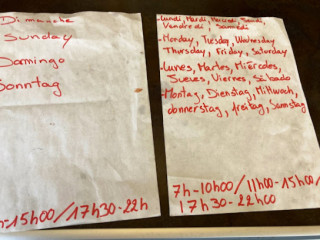 Dimanche
Sunday
Domingo
Sonntag
h-15h00/17h30-22h
Lundi, Mardi, Mercredi, Jeudi,
Vendredi Samedi
Monday, Tuesday, Wednesday
Thursday, Friday, Saturday
Lunes, Martes, Miércoles,
Jueves, Viernes, Sábado
Montag, Dienstag, Mittwoch,
donnerstag, freitag, Samstag
7h-10h00/11h00-15h00/
17h30-22h00